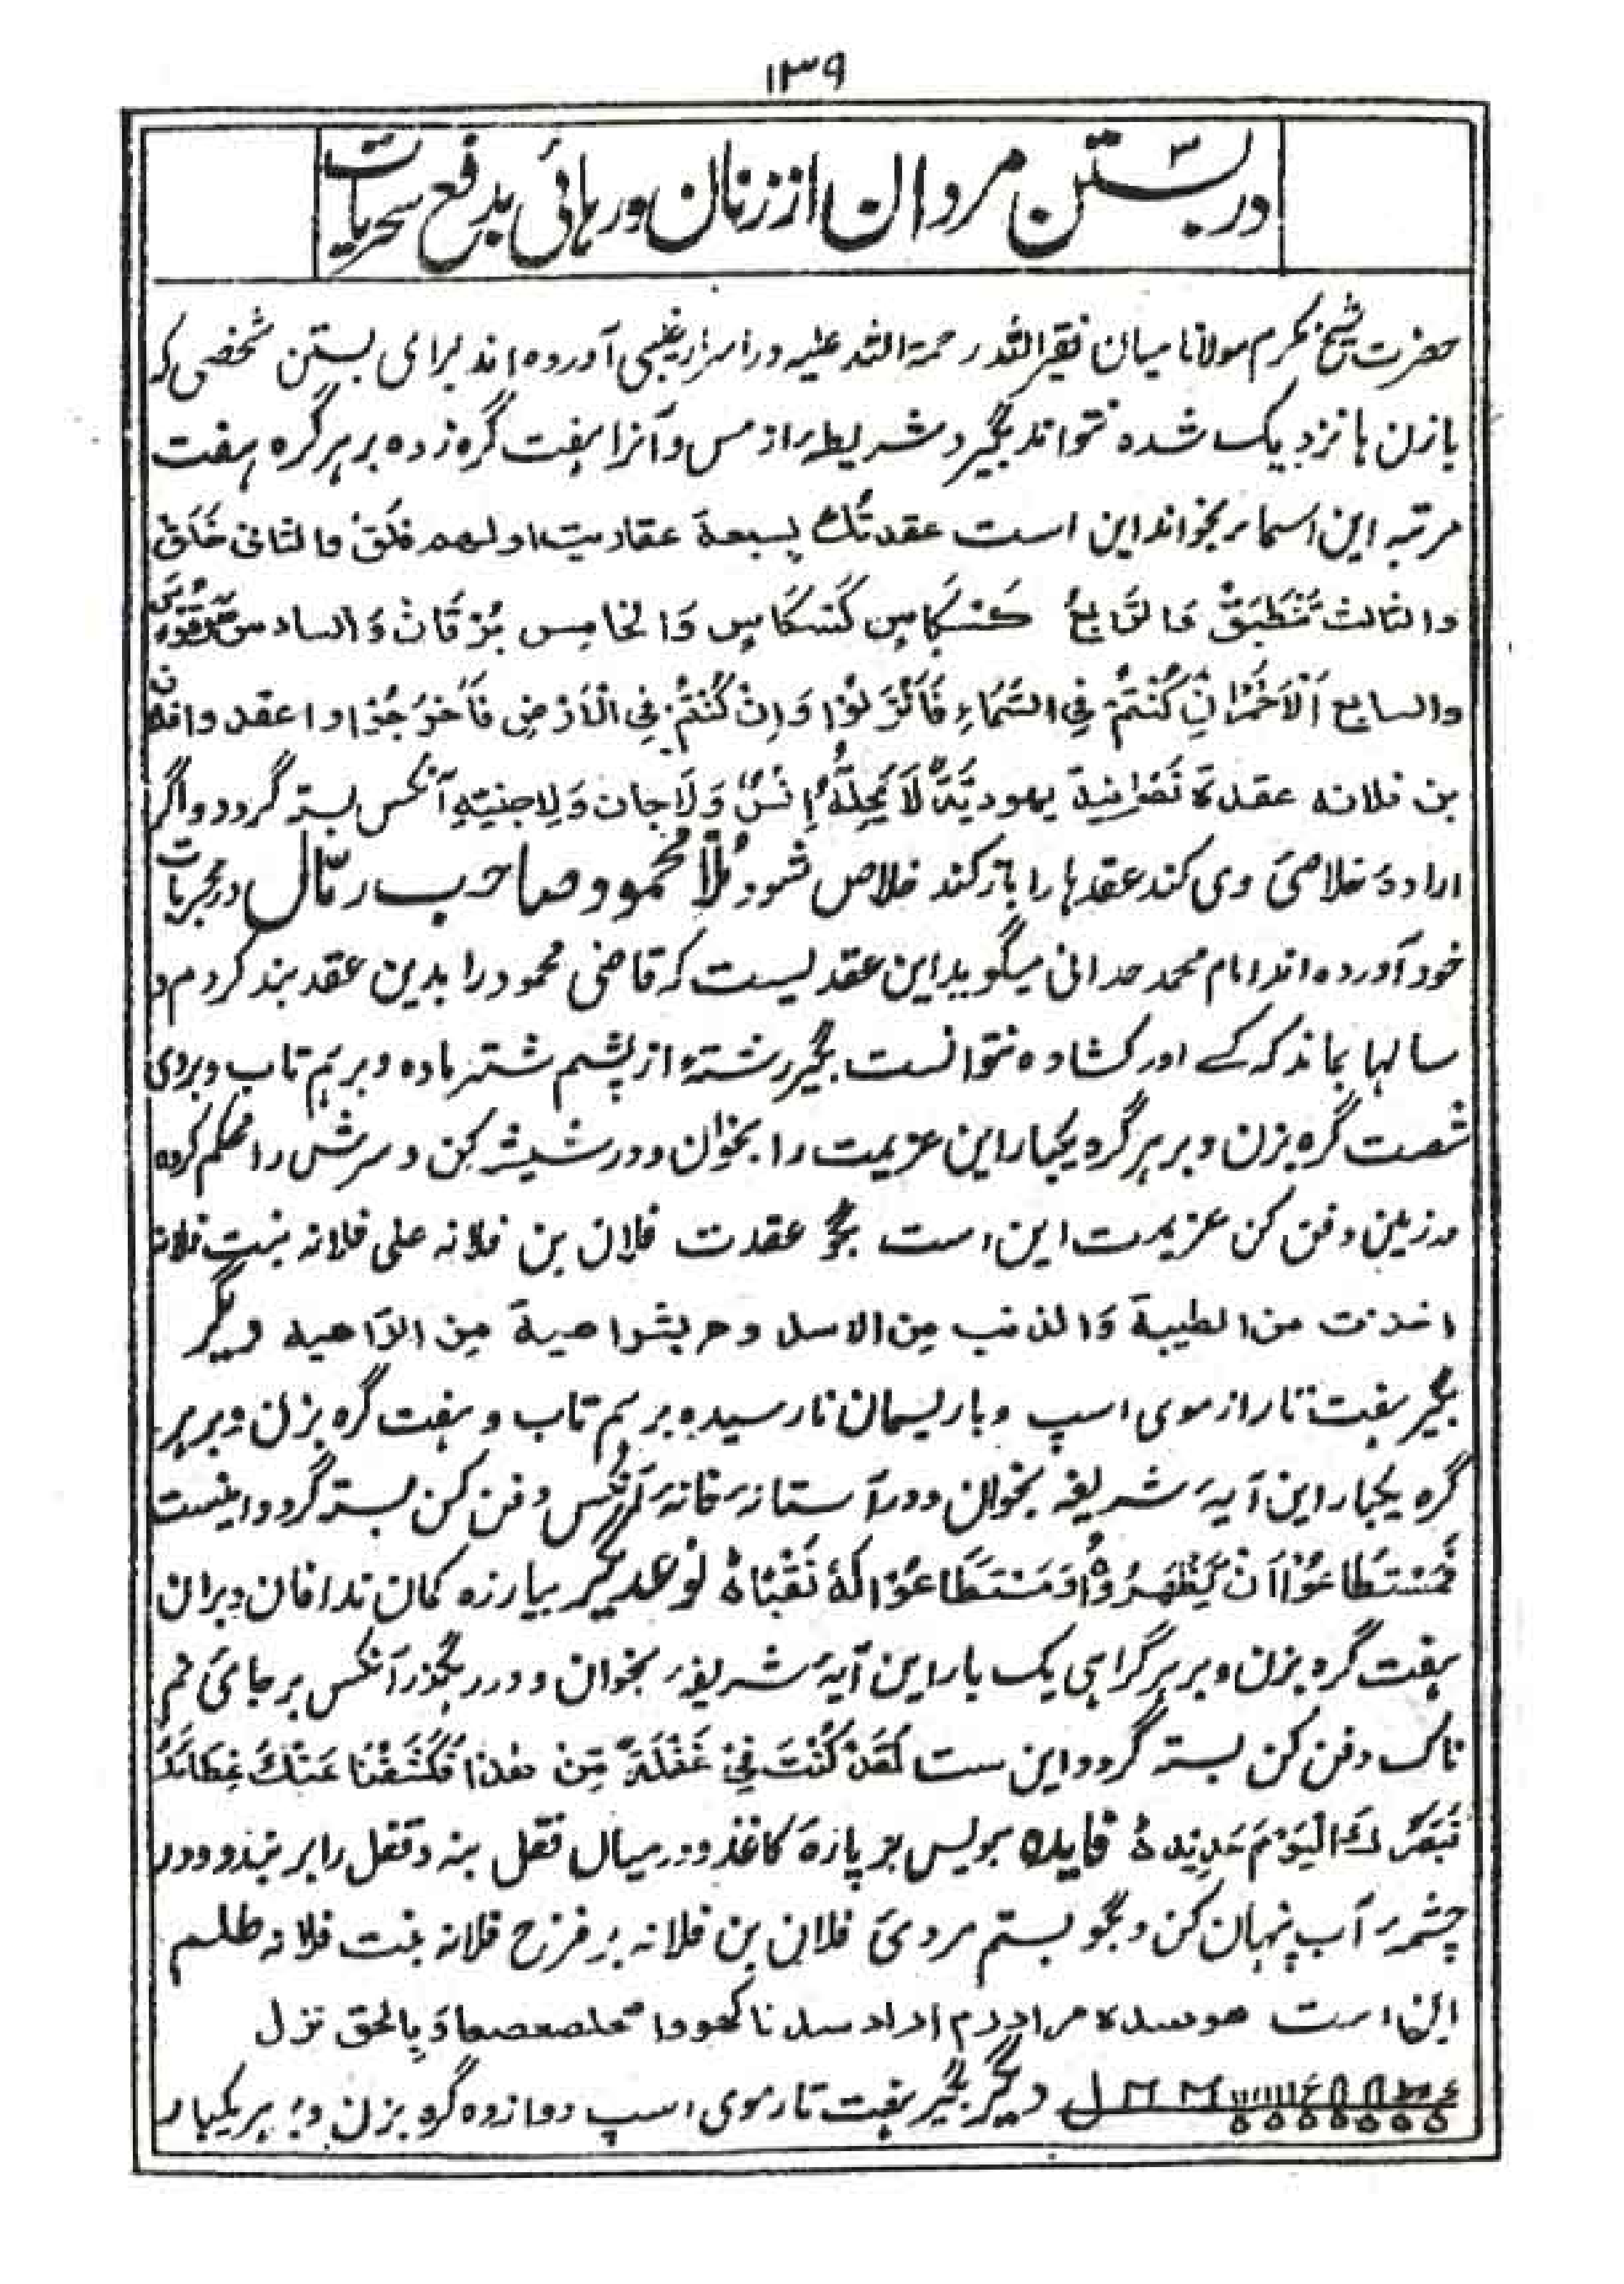 ۱۳۹
در بستن مردان از زنان و رہائی بدفع سحریات
حضرت شیخ مکرم مولانا میان فقیر اللہ رحمة اللہ علیہ در اسرار غیبی آوردہ اند برای بستن شخصی کہ
بازن ہا نزدیک شدہ نتواند بگیرد شریطہ از مس و آنرا ہفت گرہ زدہ بر ہر گرہ ہفت
مرتبہ این اسما بخواند این است عقدتک بسبعة عقادیت اولہم فلق والثانی خلق
والثالث تنطبق والرابع کنسکاس کنسکاس والخامس بزقان والسادس
والسابع الاخران کنتم فی السماء فانزلوا وان کنتم فی الارض فاخرجوا واعقد
بن فلانہ عقدة نصرانیة یہودیة لا یحلہ انس ولا جان ولا جنیتہ آنکس بستہ گردد و اگر
ارادۂ خلاصئ وی کند عقد ہا را باز کند خلاص شود ملا محمود صاحب رمّال در مجربات
خود آوردہ اند امام محمد حدانی میگوید این عقدیست کہ قاضی محمود را بدین عقد بند کردم و
سالہا بماند کہ کسے اور کشادہ نتوانست بگیر رشتۂ از پشم شتر مادہ و برہم تاب و بروی
شصت گرہ بزن و بر ہر گرہ یکبار این عزیمت را بخوان و در شیشہ کن و سرش را محکم کردہ
در زمین دفن کن عزیمت این است بگو عقدت فلان بن فلانہ علی فلانہ بنت فلانہ
اخذت من الطیبة والذئب من الاسد و من الداھیہ دیگر
بگیر ہفت تار از موی اسپ و باریسمان نارسیدہ برہم تاب و ہفت گرہ بزن و بر ہر
گرہ یکبار این آیۂ شریفہ بخوان و در آستانۂ خانۂ آنکس دفن کن بستہ گردد و اینست
فمستطاعوا ان یظھروہ ومستطاعوا لہ نقبا نوعدیگر بیار زہ کمان ندافان و بران
ہفت گرہ بزن و بر ہر گراہی یک بار این آیۂ شریفہ بخوان و در رہگذر آنکس بر جائ نم
ناک دفن کن بستہ گردد این ست لقد کنت فی غفلة من ھذا فکشفنا عنک غطائک
فبصرک الیوم حدید فایدہ بنویس بر پارۂ کاغذ و در میان قفل بنہ و قفل را بر بند و در
چشمۂ آب پنہان کن و بگو بستم مردئ فلان بن فلانہ بر فرزح فلانہ بنت فلانہ طلسم
این است وبالحق نزل
دیگر بگیر ہفت تار موی اسپ دوازدہ گرہ بزن و بر ہر یکبار